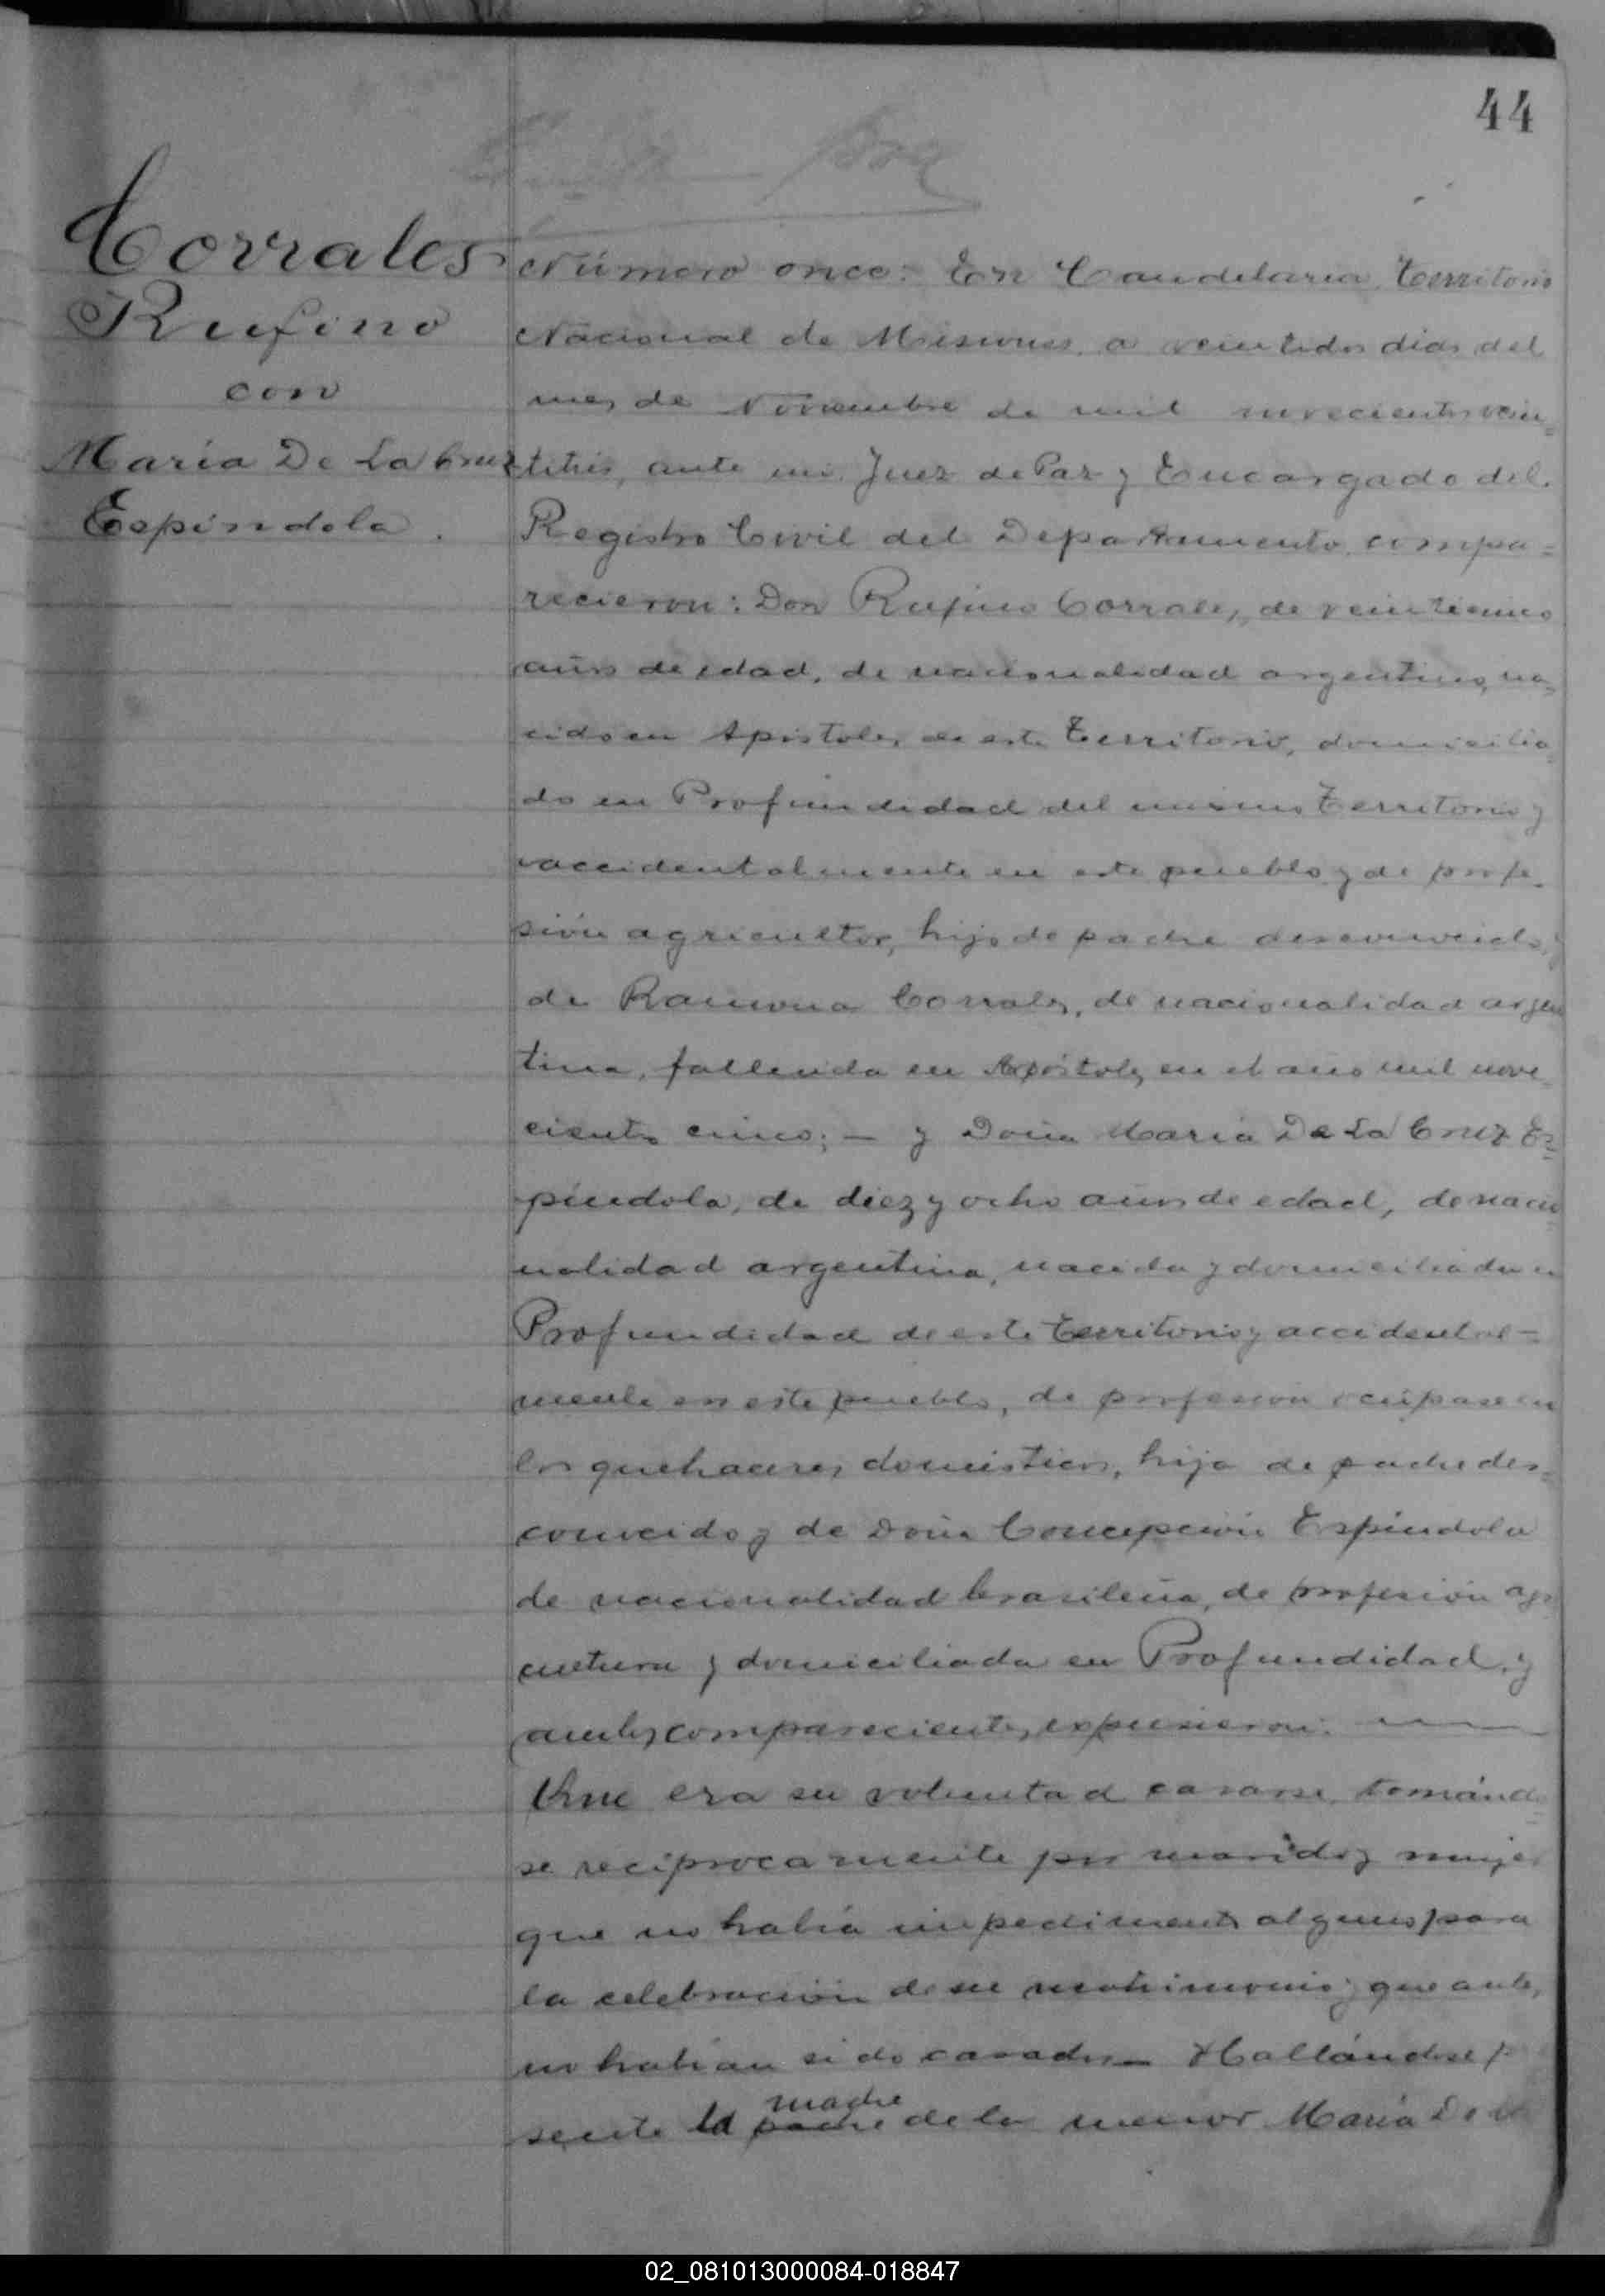 44
Corrales
Rufino
con
María De La Cruz
Espíndola.
Número once: En Candelaria, Territorio
Nacional de Misiones, a veintidos dias del
mes de Noviembre de mil novecientos vein=
titrés, ante mi Juez de Paz y Encargado del
Registro Civil del Departamento, compa=
recieron: Don Rufino Corrales, de veinticinco
años de edad, de nacionalidad argentino, na=
cido en Apóstoles de este Territorio, domicilia=
do en Profundidad del mismo Territorio y
accidentalmente en este pueblo y de profe-
sión agricultor, hijo de padre desconocido y
de Ramona Corrales, de nacionalidad argen
tina, fallecida en Apóstoles en el año mil nove=
cientos cinco; — y Doña María De La Cruz Es=
píndola, de diez y ocho años de edad, de nacio=
nalidad argentina, nacida y domiciliada en
Profundidad de este Territorio y accidental=
mente en este pueblo, de profesión ocuparse en
los quehaceres domésticos, hija de padre des=
conocido y de Doña Concepción Espíndola
de nacionalidad brasileña, de profesión agri
cultura y domiciliada en Profundidad, y
ambos comparecientes, expusieron:
Que era su voluntad casarse, tomándo=
se recíprocamente por marido y mujer
que no había impedimento alguno para
la celebración de su matrimonio y que antes
no habían sido casados— Hallándose pre
madre
sente la padre de la menor María De la
02_081013000084-018847